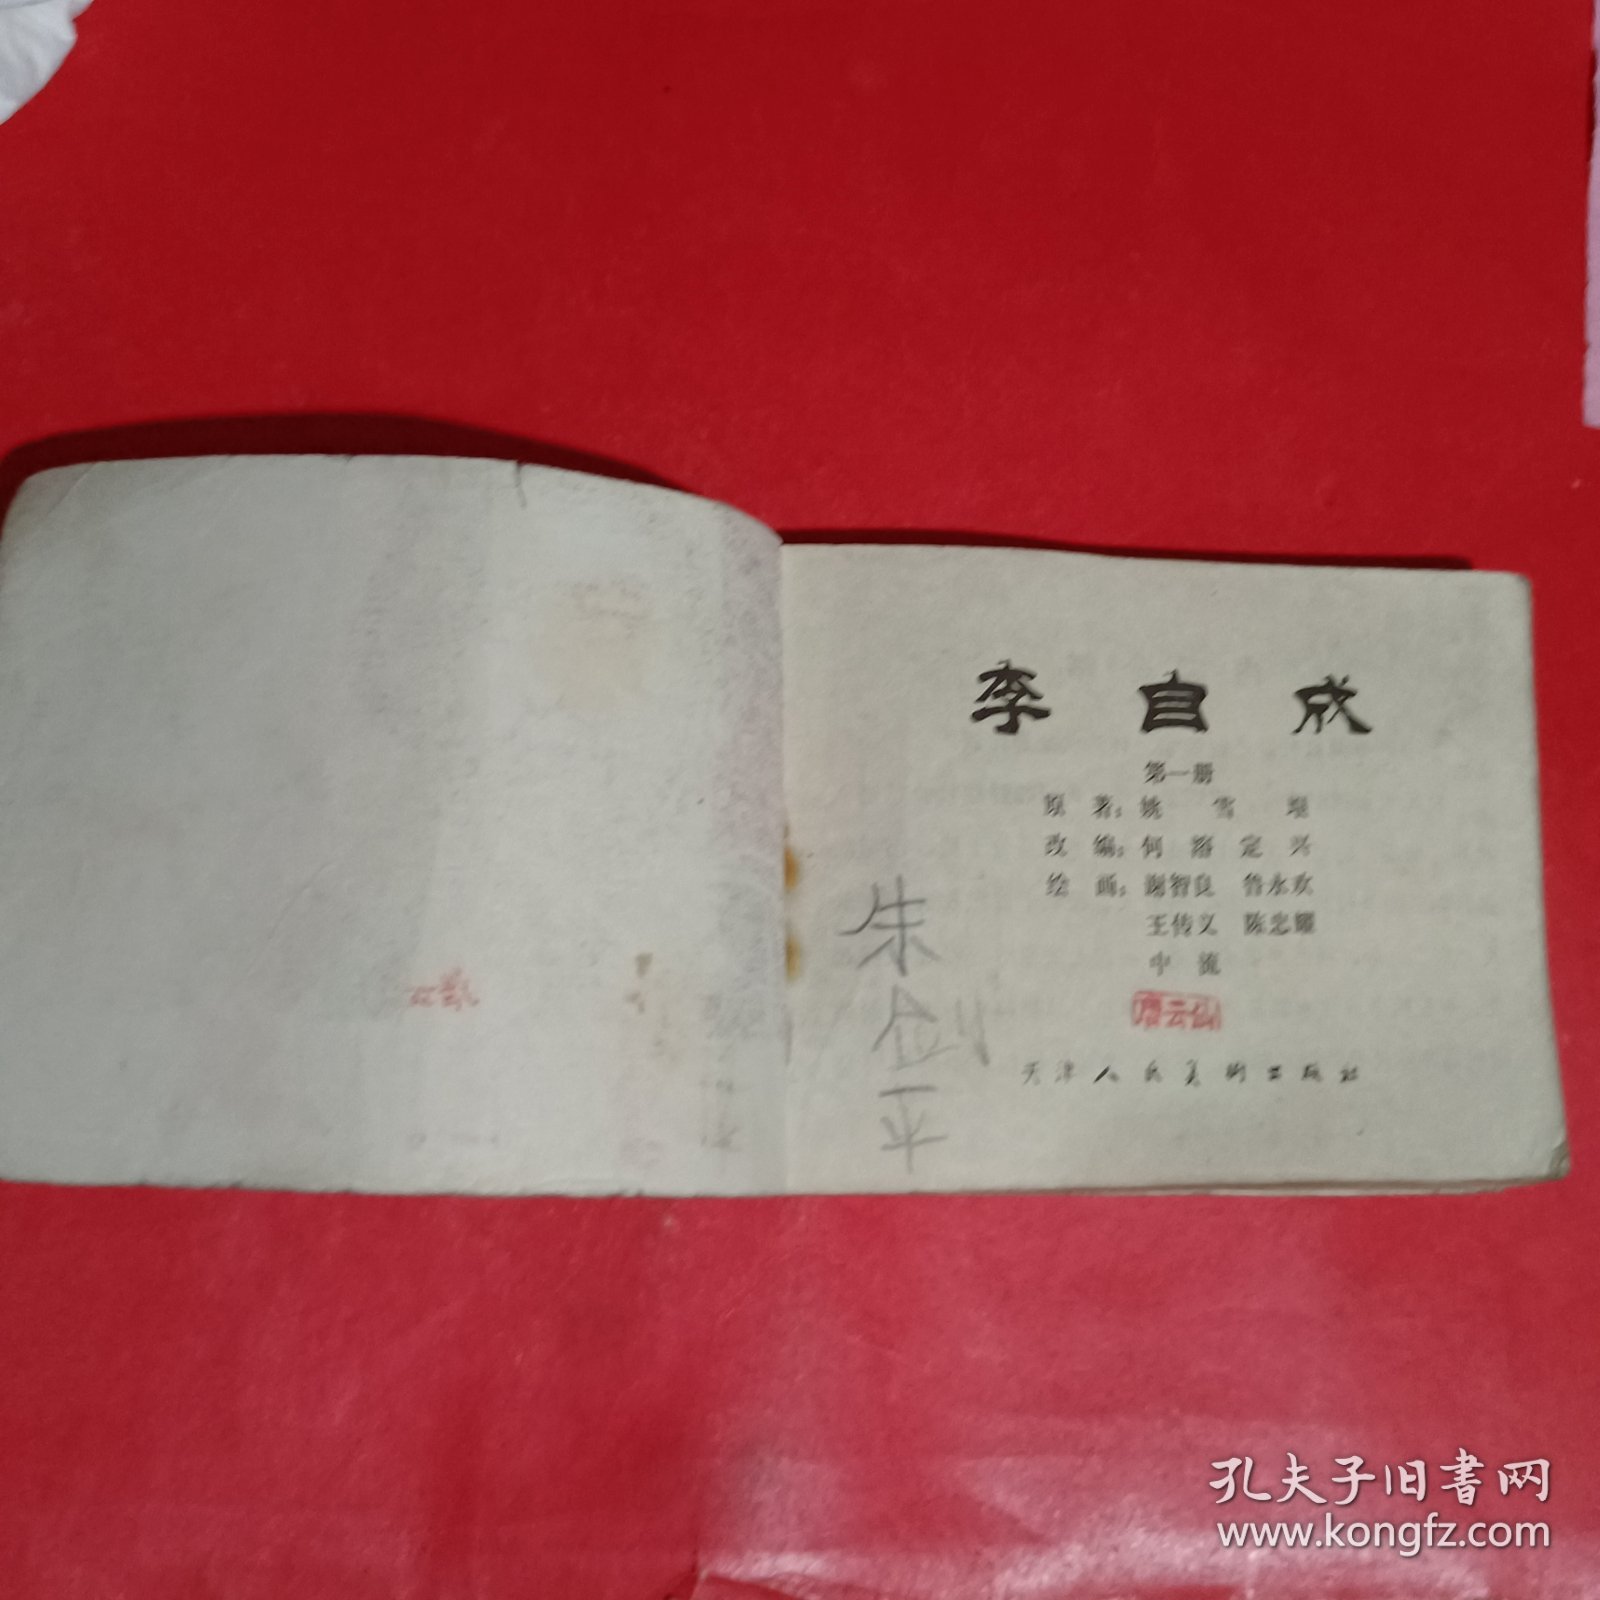 李自成
第一册
原著：姚雪垠
改编：何溶 定兴
绘画：谢智良 鲁永欢
王传义 陈忠耀
中流
唐云仙
天津人民美术出版社
朱
剑
平
孔夫子旧书网
www.kongfz.com